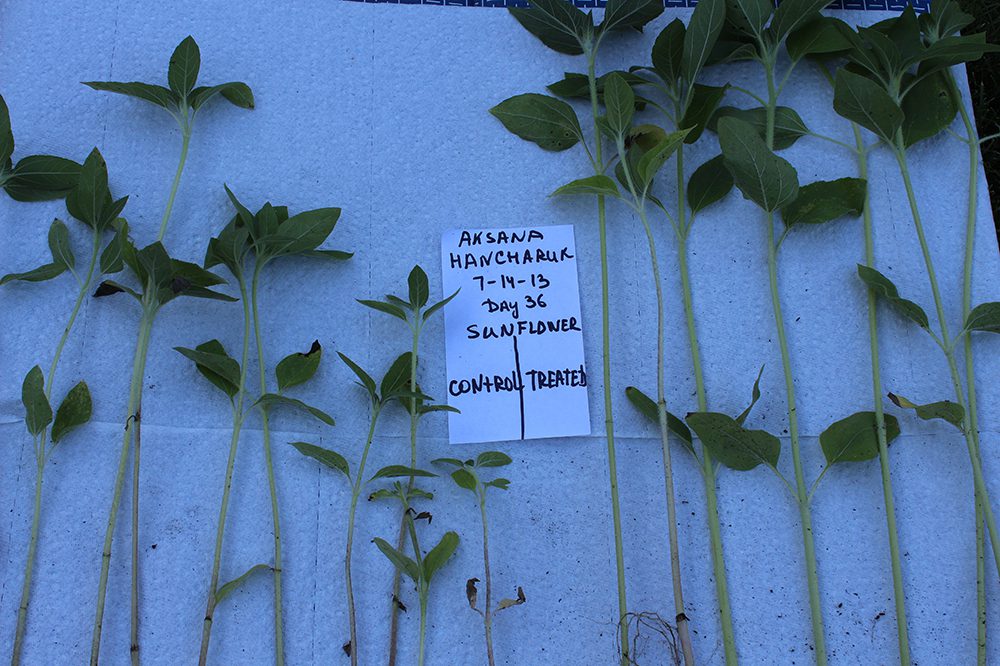 AKSANA
HANCHARUK
7-14-13
DAY 36
SUNFLOWER
CONTROL TREATED